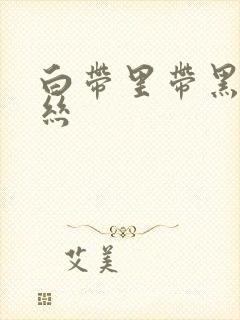 白带里带黑
丝
艾美